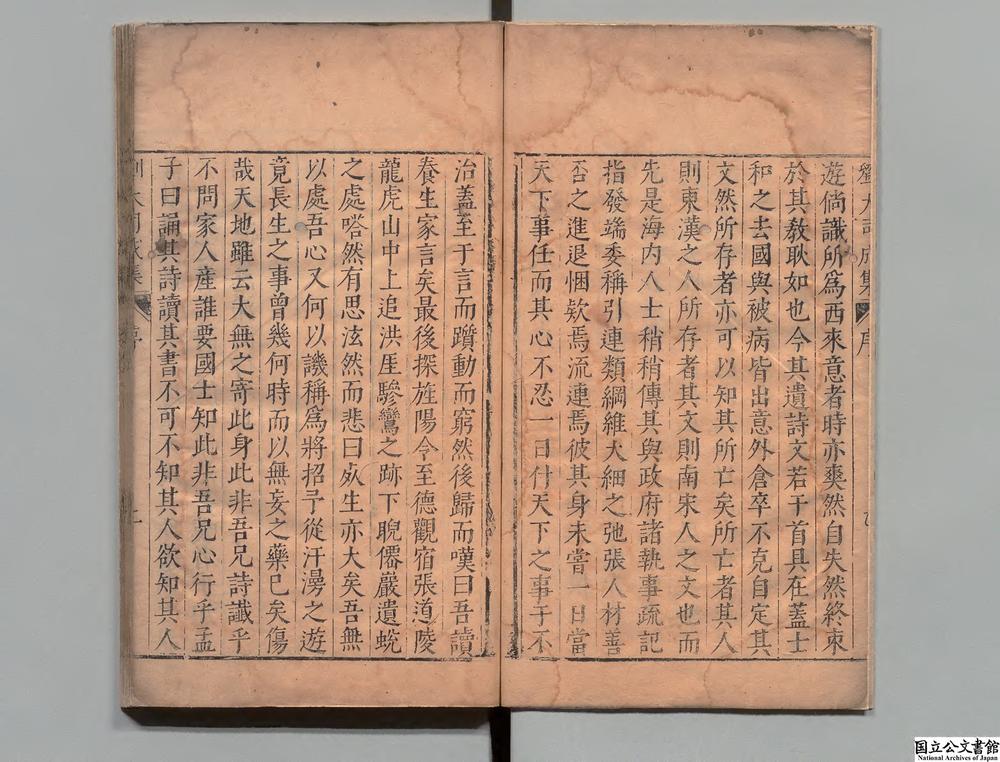 遊倘識所為西來意者時亦爽然自失然終束
於其教耿如也今其遺詩文若干首具在蓋士
和之去國與被病皆出意外倉卒不克自定其
文然所存者亦可以知其所亡矣所亡者其人
則東漢之人所存者其文則南宋人之文也而
先是海內人士稍稍傳其與政府諸執事疏記
指發端委稱引連類綱維大細之弛張人材善
否之進退悃欵焉流連焉彼其身未嘗一日當
天下事任而其心不忍一日付天下之事于不
治蓋至于言而躓動而窮然後歸而嘆曰吾讀
養生家言矣最後探旌陽令至德觀宿張道陵
龍虎山中上追洪厓驂鸞之跡下睨僊巖遺蛻
之處嗒然有思泫然而悲曰死生亦大矣吾無
以處吾心又何以譏稱為將招予從汗漫之遊
竟長生之事曾幾何時而以無妄之藥已矣傷
哉天地雖云大無之寄此身此非吾兄詩讖乎
不問家人產誰要國士知此非吾兄心行乎孟
子曰誦其詩讀其書不可不知其人欲知其人
国立公文書館
National Archives of Japan